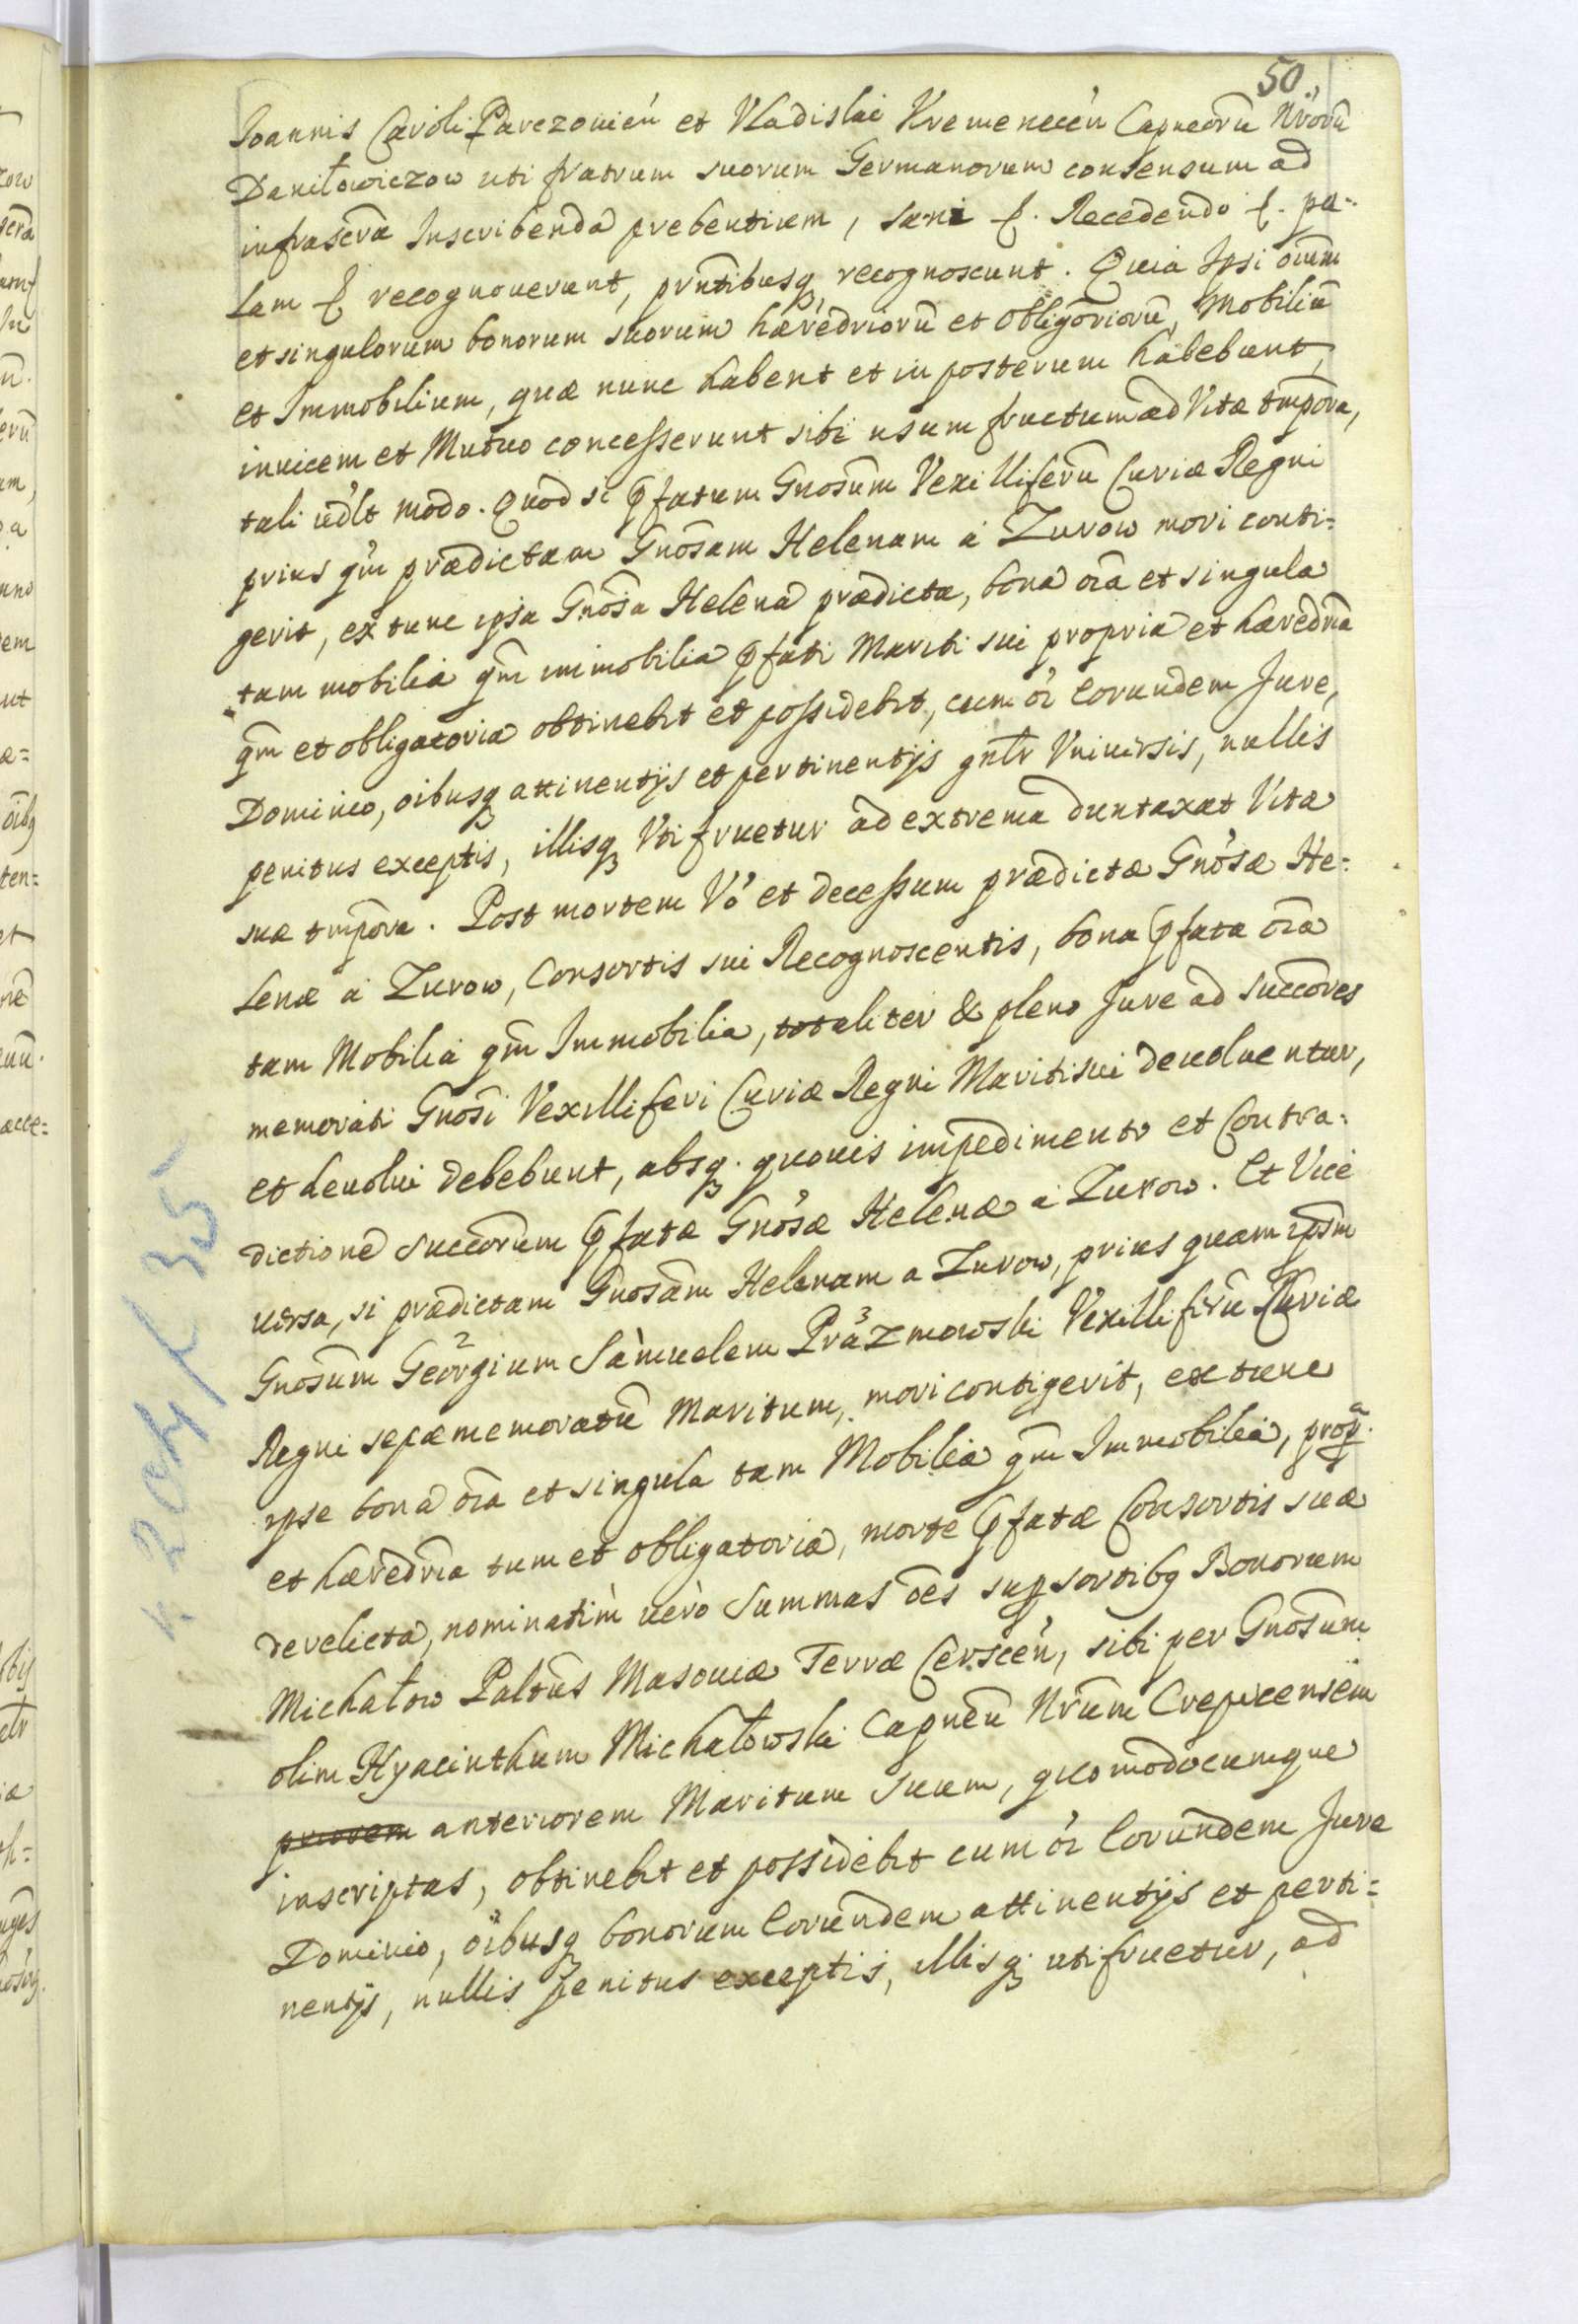 50.
Joannis Caroli Parczouień et Vladislai Kremenecēn Capneorū Nrorū
Daniłowiczow uti fratrum suorum Germanorum consensum ad
infrascra Inscribenda prebentium, sani f. Recedendo f. pa=
lam f recognouerunt, prntibusq recognoscunt. Quia Ipsi oium
et singulorum bonorum suorum hæredriorū et obligōriorū, Mobiliū
et Immobilium, quæ nunc habent et in posterum habebunt,
inuicem et Mutuo concesserunt sibi usum fructum ad Vitæ tmpora,
tali uđlt modo. Quod si pfatum Gnosum Vexilliferū Curiæ Regni
prius qm prædictam Gnosam Helenam a Zurow mori conti=
gerit, ex tunc ipsa Gnosa Helena prædicta, bona oia et singula
tam mobilia qm immobilia pfati Mariti sui propria et hæredria
qm et obligatoria obtinebit et possidebit, cum oi eorundem Jure,
Dominio, oibusq attinentijs et pertinentijs gnlr Vniuersis, nullis
penitus exceptis, illisq Vti fruetur ad extrema duntaxat Vitæ
suæ tmpora. Post mortem Vo et decessum prædictæ Gnosæ He=
lenæ a Zurow, Consortis sui Recognoscentis, bona pfata oia
tam Mobilia qm Immobilia, totaliter & pleno Jure ad succores
memorati Gnosi Vexilliferi Curiæ Regni Mariti sui deuoluentur,
et deuolui debebunt, absq. quouis impedimento et Contra=
dictione succorum pfatæ Gnosæ Helenæ a Zurow. Et Vice
uersa, si prædictam Gnosam Helenam a Zurow, prius quam ipsm
Gnosum Georgium Samuelem Prazmowski Vexilliferū Curiæ
Regni sepæmemoratū Maritum, mori contigerit, ex tunc
ipse bona oia et singula tam Mobilia qm Immobilia, propa.
et hæredria tum et obligatoria, morte pfatæ Consortis suæ
derelicta, nominatim uero Summas oēs sup sortibq Bonorum
Michałow Paltus Masouiæ Terræ Cerscēn, sibi per Gnosum
olim Hyacinthum Michałowski Capneū Nrum Crepicensem
priorem anteriorem Maritum suum, quomodocumque
inscriptas, obtinebit et possidebit cum oi eorundem Jure
Dominio, oibusq bonorum eorundem attinentijs et perti=
nentijs, nullis penitus exceptis, illisq utifruetur, ad